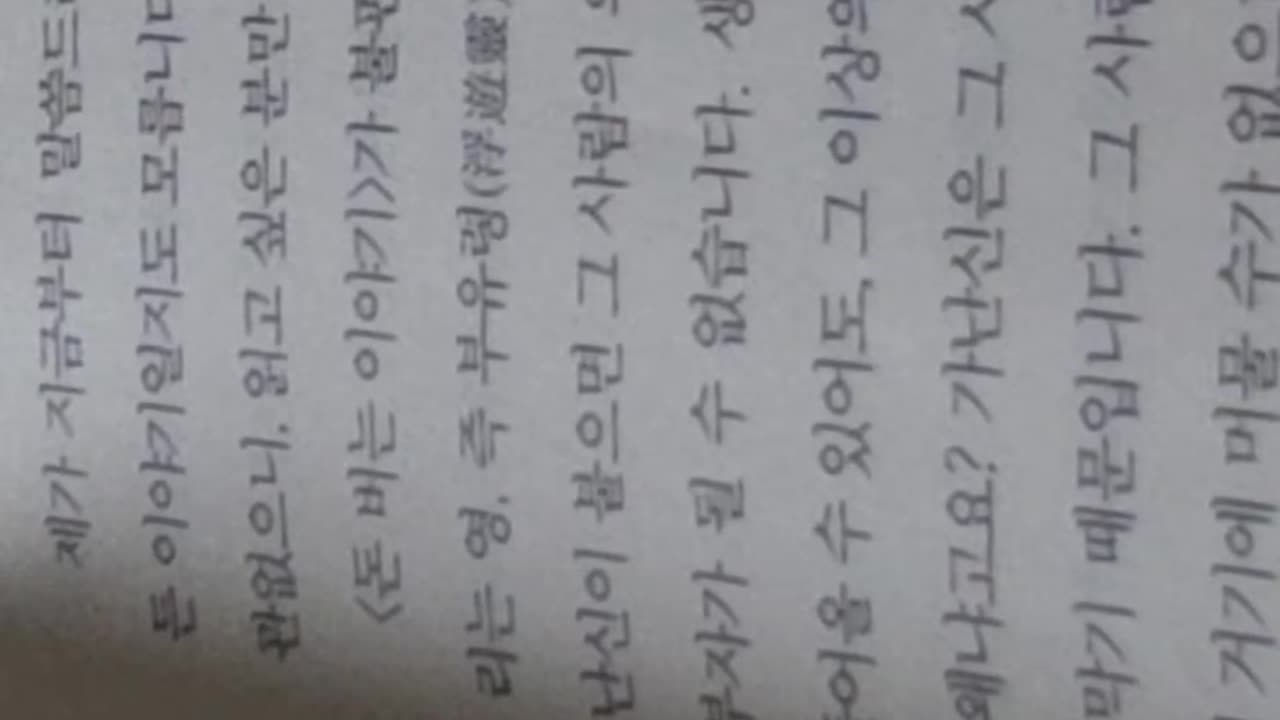 제가 지금부터 말씀드
든 이야기일지도 모릅니다
관없으니, 읽고 싶은 분만
<돈 버는 이야기>가 불편
리는 영, 즉 부유령(浮遊靈)
난신이 붙으면 그 사람의
부자가 될 수 없습니다. 생
어올 수 있어도, 그 이상의
왜냐고요? 가난신은 그 사
막기 때문입니다. 그 사람
거기에 머물 수가 없